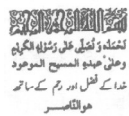 بسم اللہ الرحمن الرحیم
نحمدہ و نصلی علی رسولہ الکریم
وعلیٰ عبدہ المسیح الموعود
خدا کے فضل اور رحم کے ساتھ
ھو الناصر